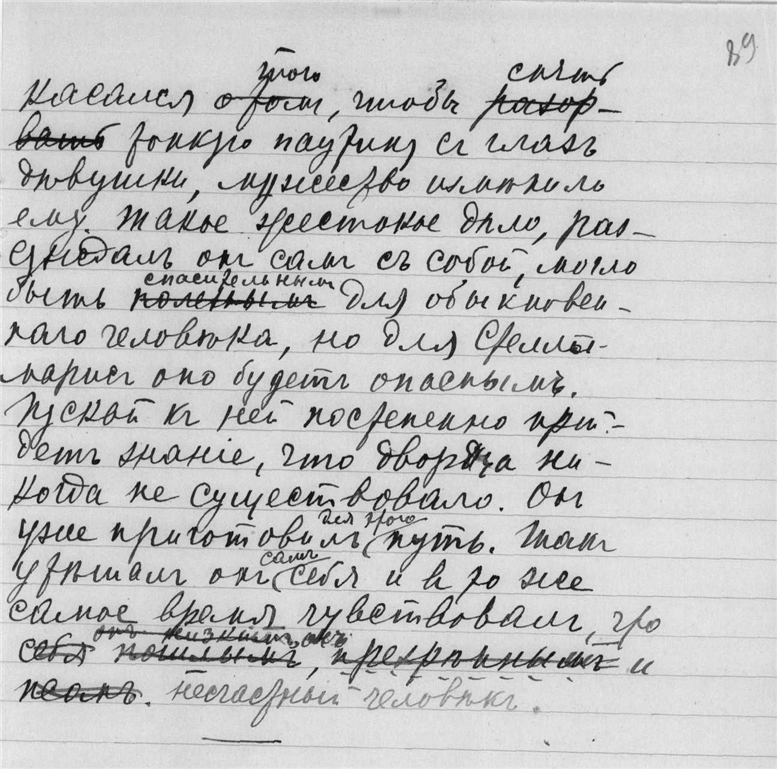 89
того снять
касался о томъ, чтобы разор-
вать тонкую паутину съ глазъ
дѣвушки, мужество измѣнило
ему. Такое жестокое дѣло, раз-
суждалъ онъ самъ съ собой, могло
спасительнымъ
быть полезнымъ для обыкновен-
наго человѣка, но для Стеллы-
марисъ оно будетъ опаснымъ.
Пускай къ ней постепенно прій-
детъ знаніе, что дворца ни-
когда не существовало. Онъ
для этого
уже приготовилъ путь. Такъ
самъ
утѣшалъ онъ себя и въ то же
самое время чувствовалъ, что
онъ низкимъ
себя пошлымъ, презрѣннымъ и
несчастный человѣкъ.